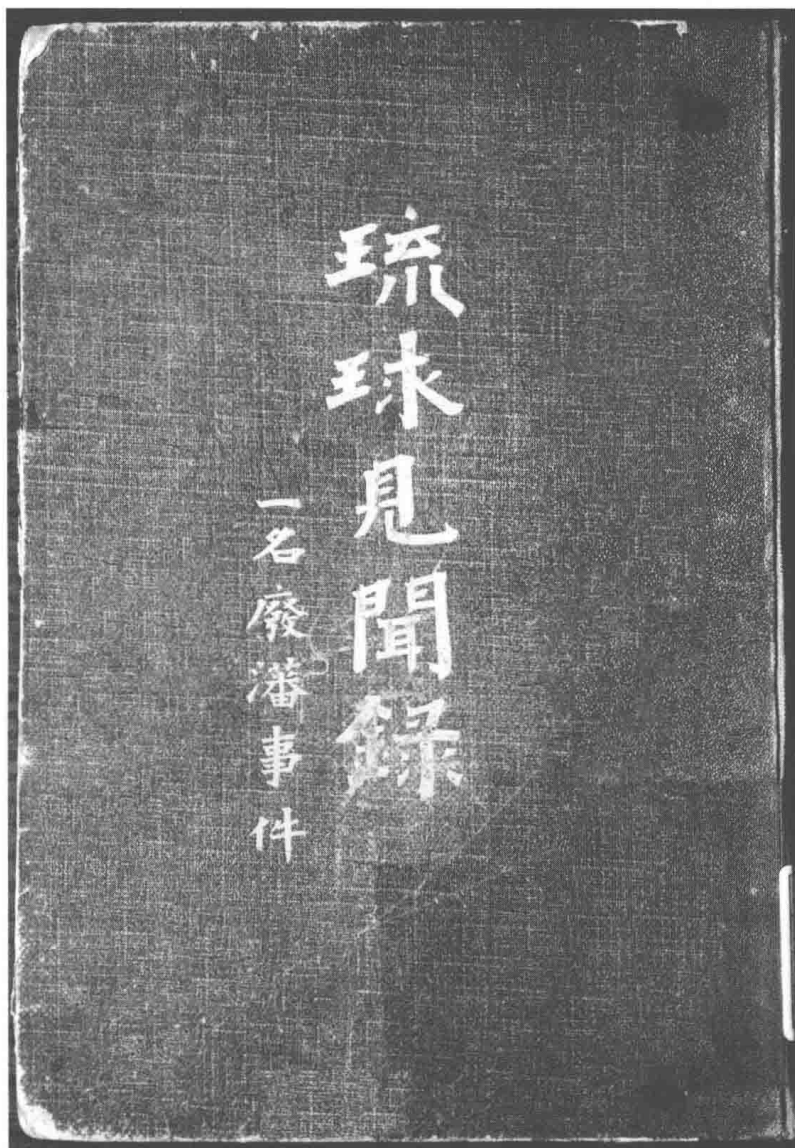 琉球見聞録
一名廢藩事件